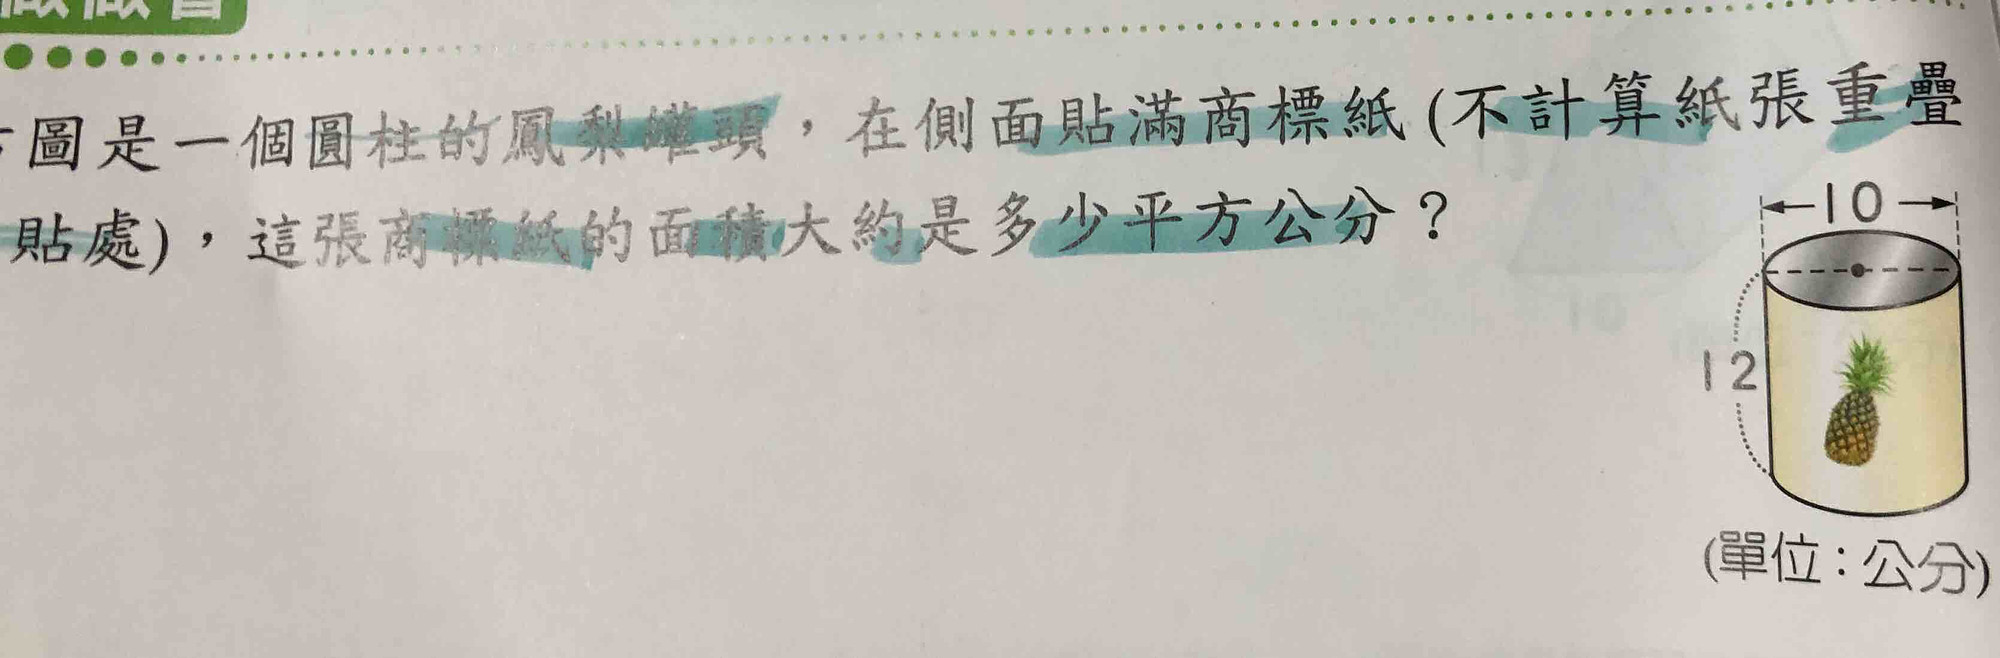 圖是一個圓柱的鳳梨罐頭，在側面貼滿商標紙(不計算紙張重疊
貼處)，這張商標紙的面積大約是多少平方公分？
10
12
(單位：公分)